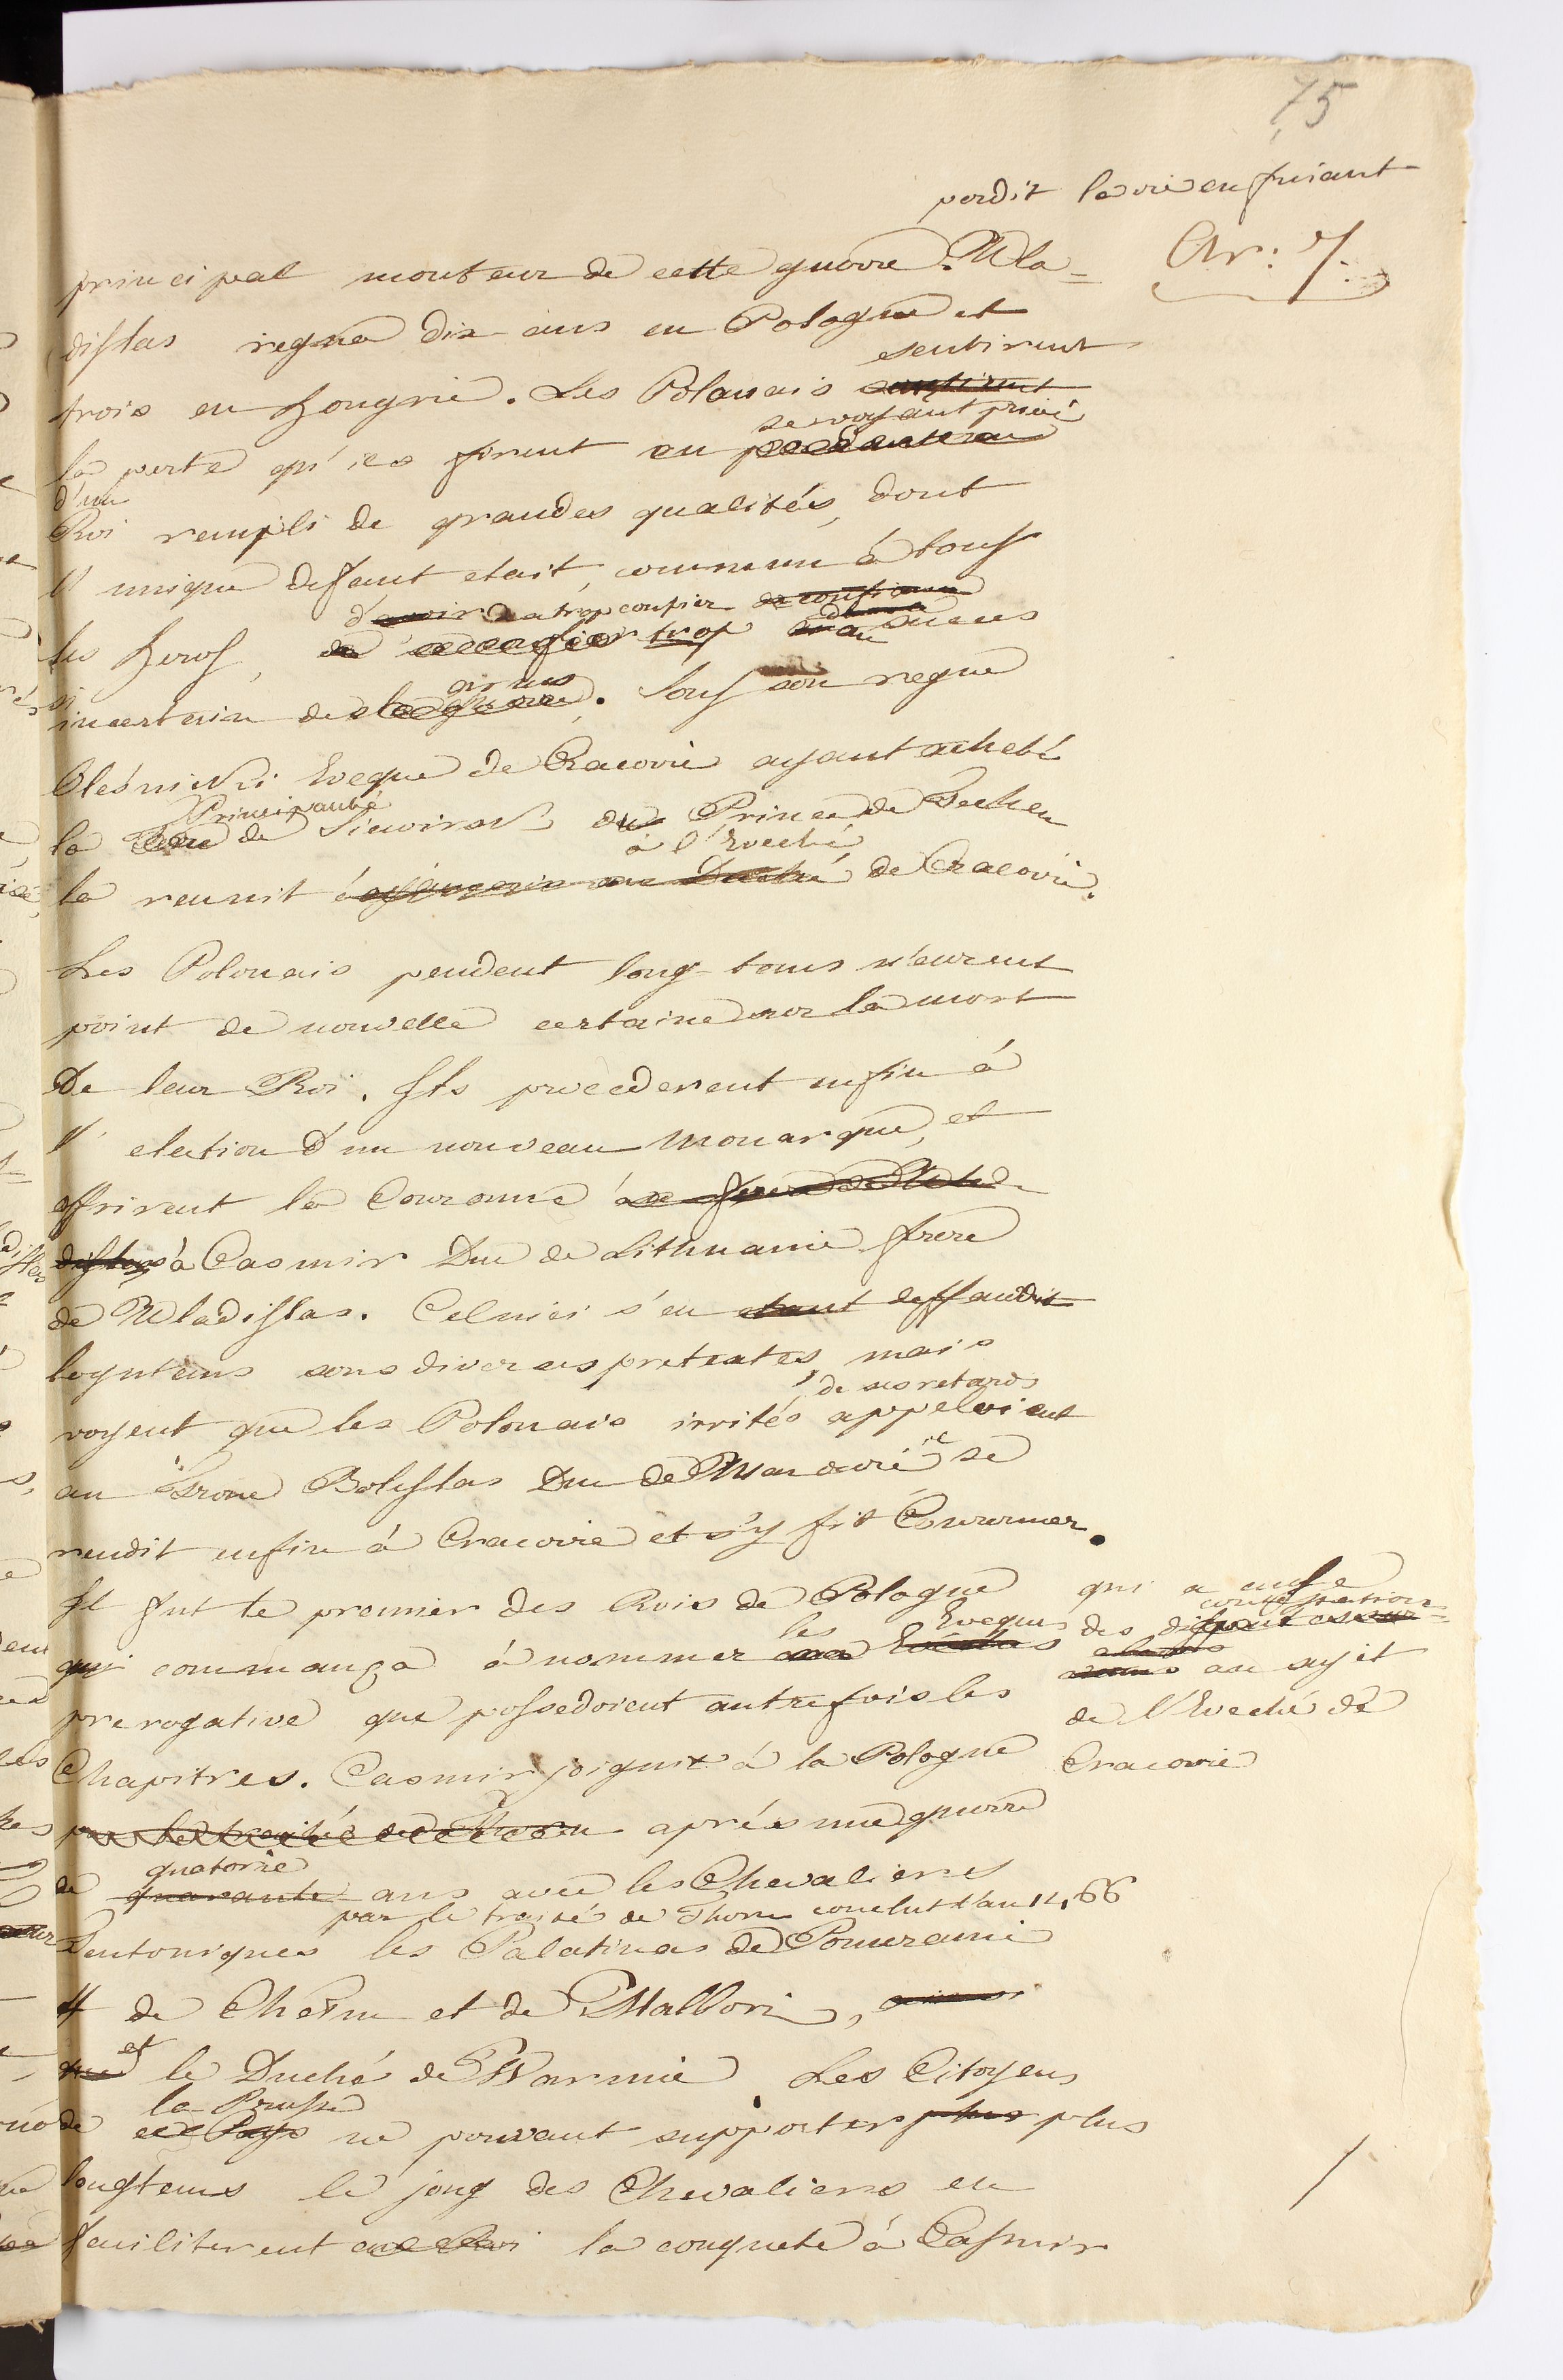 75
perdit la vie en fuiant
Ar: 7.
principal monteur de cette guerre. Wla=
dislas regna dix ans en Pologne et
sentirent
trois en Hongrie. Les Polonais sentirent
se voyant privé
la perte qu'ils firent en perdant
d'un
Roi rempli de grandes qualités, dont
l'unique deffaut etait, commun à tous
d'avoir trop confier
les heros, trop
si
incertain des armes. Sous son regne
Olésnicki Eveque de Cracovie ayant acheté
Principauté
la Terre de Siewirsk du Prince de Teschen
à l'Eveché
la reunit au Duché de Cracovie.
Les Polonais pendent long-tems n'eurent
point de nouvelle certaine sur la mort
De leur Roi. Ils procederent enfin à
l'election d'un nouveau Monarque, et
offrirent la Couronne à frere de Wla-
dislas à Casmir Duc de Lithuanie frere
de Wladislas. Celuici s'en etant deffandit
logntems sous diverses pretextes mais
de ses retards
voyent que les Polonais irrités appeloient
au Trone Boleslas Duc de Masovie se
rendit enfin à Cracovie et s'y fit Couronner.
Il fut le premier des Rois de Pologne
les Eveques
qui commança à nommer aux Evéchés
prerogative que possedoient autrefois les
Chapitres. Casmir joignit à la Pologne
par le traité de Thorn après une guerre
quatorze
de quarante ans avec les Chevaliers
par le traité de Thorn conclut l'an 1466
Teutoniques les Palatinas de Pomeranie
de Chełm et de Malbori, ainsi
et
que le Duché de Warmie. Les Citoyens
la Prusse
de ce Pays ne pouvant supporter plus plus
longtems le joug des Chevaliers en
faciliterent au Roi la conquete à Casmir
qui a causé
des disputes
au sujet
de l'Eveché de
Cracovie